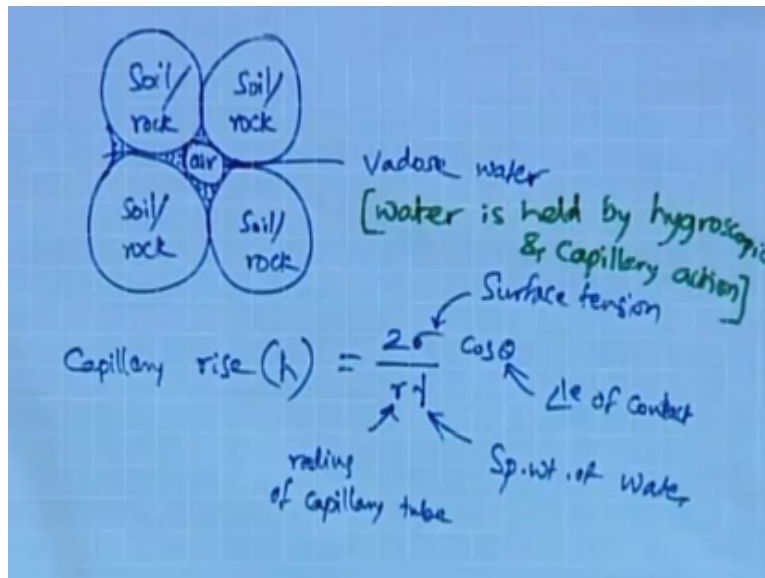 Soil/
rock
Soil/
rock
air
Vadose water
[Water is held by hygroscopic
& Capillary action]
Soil/
rock
Soil/
rock
Surface tension
Capillary rise (h) = 2σ/rγ Cosθ
∠le of Contact
radius
of Capillary tube
Sp. wt. of Water